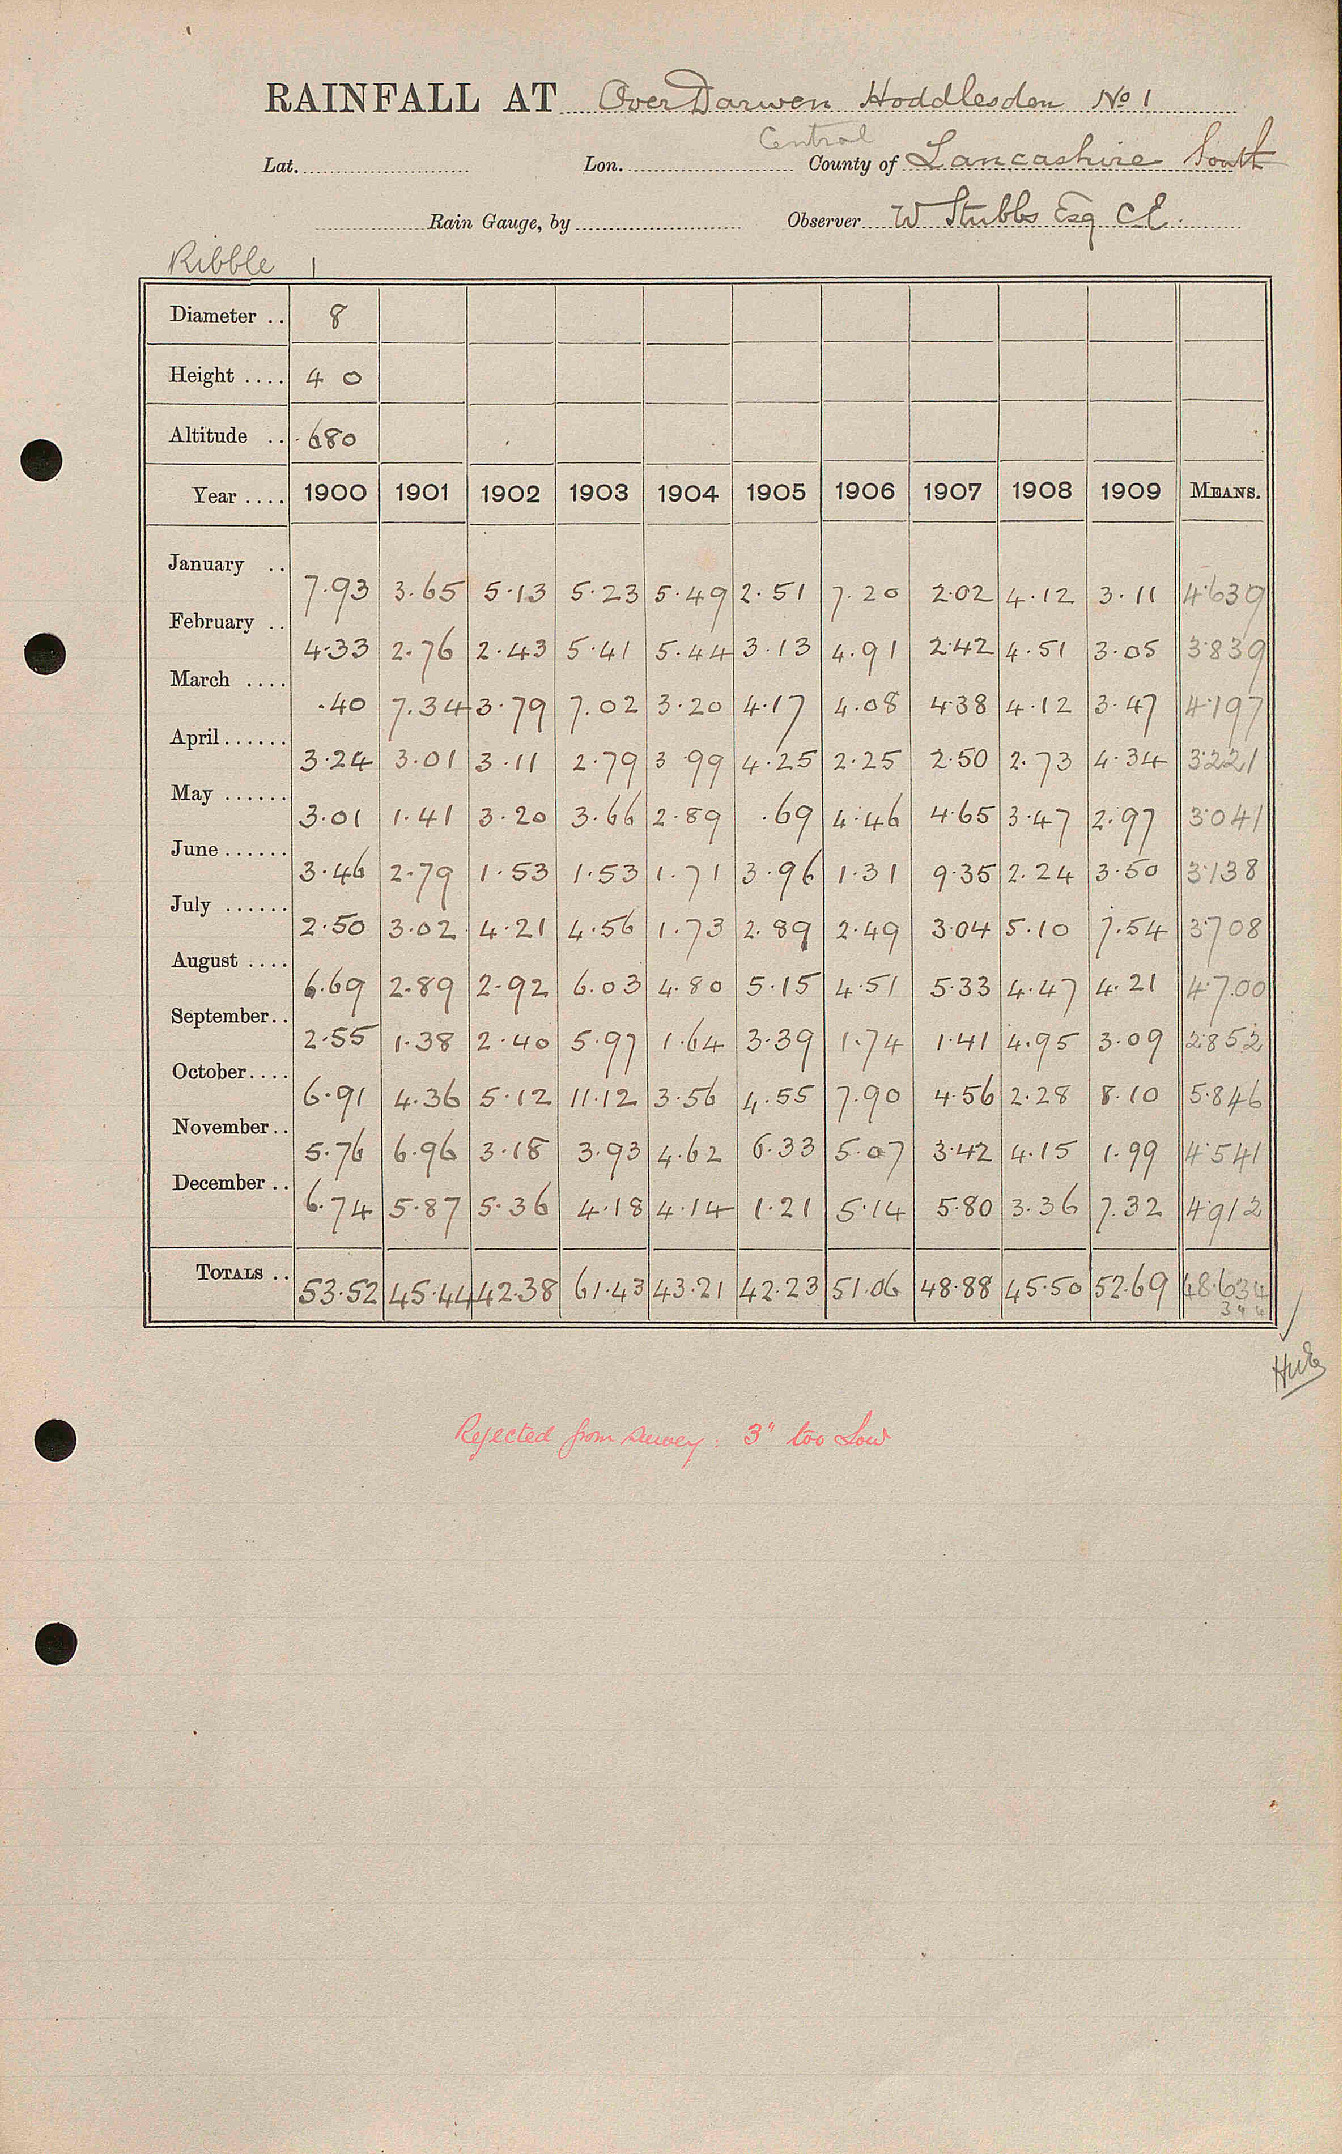 RAINFALL AT Over Darwen Hoddlesden No 1
Central
Lat. Lon. County of Lancashire South
Rain Gauge, by Observer W Stubbs Esq C.E.
Ribble 1
Diameter .. 8
Height .... 4 0
Altitude .. 680
Year .... 1900 1901 1902 1903 1904 1905 1906 1907 1908 1909 MEANS.
January .. 7.93 3.65 5.13 5.23 5.49 2.51 7.20 2.02 4.12 3.11 4.639
February .. 4.33 2.76 2.43 5.41 5.44 3.13 4.91 2.42 4.51 3.05 3.839
March .... .40 7.34 3.79 7.02 3.20 4.17 4.08 4.38 4.12 3.47 4.197
April...... 3.24 3.01 3.11 2.79 3 99 4.25 2.25 2.50 2.73 4.34 3.221
May ...... 3.01 1.41 3.20 3.66 2.89 .69 4.46 4.65 3.47 2.97 3.041
June ...... 3.46 2.79 1.53 1.53 1.71 3.96 1.31 9.35 2.24 3.50 3.138
July ...... 2.50 3.02 4.21 4.56 1.73 2.89 2.49 3.04 5.10 7.54 3.708
August .... 6.69 2.89 2.92 6.03 4.80 5.15 4.51 5.33 4.47 4.21 4.700
September.. 2.55 1.38 2.40 5.97 1.64 3.39 1.74 1.41 4.95 3.09 2.852
October.... 6.91 4.36 5.12 11.12 3.56 4.55 7.90 4.56 2.28 8.10 5.846
November.. 5.76 6.96 3.18 3.93 4.62 6.33 5.07 3.42 4.15 1.99 4.541
December .. 6.74 5.87 5.36 4.18 4.14 1.21 5.14 5.80 3.36 7.32 4.912
TOTALS .. 53.52 45.44 42.38 61.43 43.21 42.23 51.06 48.88 45.50 52.69 48.634
Rejected from survey: 3" too Low